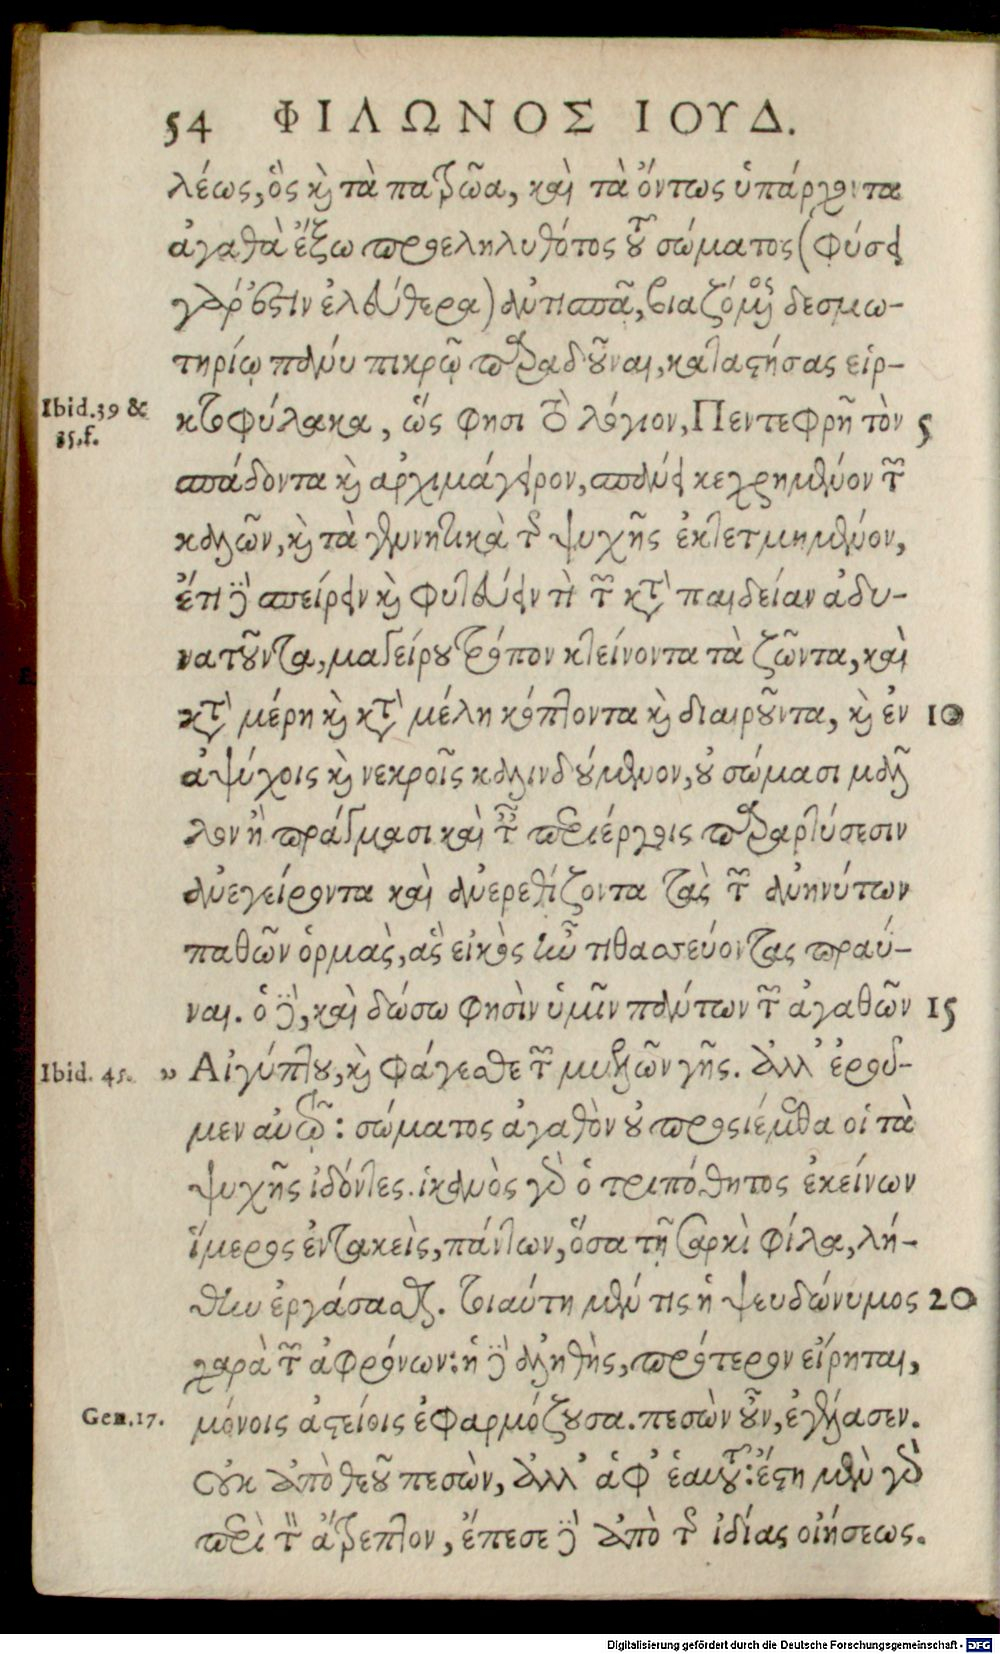 54 ΦΙΛΩΝΟΣ ΙΟΥΔ.
λέως, ὃς καὶ τὰ πατρῷα, καὶ τὰ ὄντως ὑπάρχοντα
ἀγαθὰ ἔξω προεληλυθότος τοῦ σώματος (φύσει
γάρ ἐστιν ἐλευθέρα) ἀντισπᾷ, βιαζόμενος δεσμω-
τηρίῳ πάνυ πικρῷ παραδοῦναι, καταστήσας εἱρ-
Ibid. 39 &
35. f.
κτοφύλακα, ὥς φησι τὸ λόγιον, Πεντεφρῆ τὸν 5
σπάδοντα καὶ ἀρχιμάγειρον, σπάνει κεχρημένον τῶν
καλῶν, καὶ τὰ γεννητικὰ τῆς ψυχῆς ἐκτετμημένον,
ἔτι δὲ σπείρειν καὶ φυτεύειν τι τῶν κατὰ παιδείαν ἀδυ-
νατοῦντα, μαγείρου τρόπον κτείνοντα τὰ ζῶντα, καὶ
κατὰ μέρη καὶ κατὰ μέλη κόπτοντα καὶ διαιροῦντα, καὶ ἐν 10
ἀψύχοις καὶ νεκροῖς καλινδούμενον, οὐ σώμασι μᾶλ
λον ἢ πράγμασι καὶ ταῖς περιέργοις παραρτύσεσιν
ἀνεγείροντα καὶ ἀνερεθίζοντα τὰς τῶν ἀνηνύτων
παθῶν ὁρμὰς, ἃς εἰκὸς ἦν τιθασεύοντας πραΰ-
ναι. ὁ δὲ, καὶ δώσω φησὶν ὑμῖν πάντων τῶν ἀγαθῶν 15
Ibid. 45. » Αἰγύπτου, καὶ φάγεσθε τὸν μυελὸν γῆς. ἀλλ' ἐροῦ-
μεν αὐτῷ: σώματος ἀγαθὸν οὐ προσιέμεθα οἱ τὰ
ψυχῆς ἰδόντες. ἱκανὸς γὰρ ὁ τριπόθητος ἐκείνων
ἵμερος ἐντακεὶς, πάντων, ὅσα τῇ σαρκὶ φίλα, λή-
θην ἐργάσασθαι. τοιαύτη μέν τις ἡ ψευδώνυμος 20
χαρὰ τῶν ἀφρόνων: ἡ δὲ ἀληθὴς, πρότερον εἴρηται,
Gen. 17. μόνοις ἀστείοις ἐφαρμόζουσα. πεσὼν οὖν, ἐγέλασεν.
οὐκ ἀπὸ θεοῦ πεσὼν, ἀλλ' ἀφ' ἑαυτοῦ: ἔστη μὲν γὰρ
περὶ τὸν ἄτρεπτον, ἔπεσε δὲ ἀπὸ τῆς ἰδίας οἰήσεως.
Digitalisierung gefördert durch die Deutsche Forschungsgemeinschaft - DFG